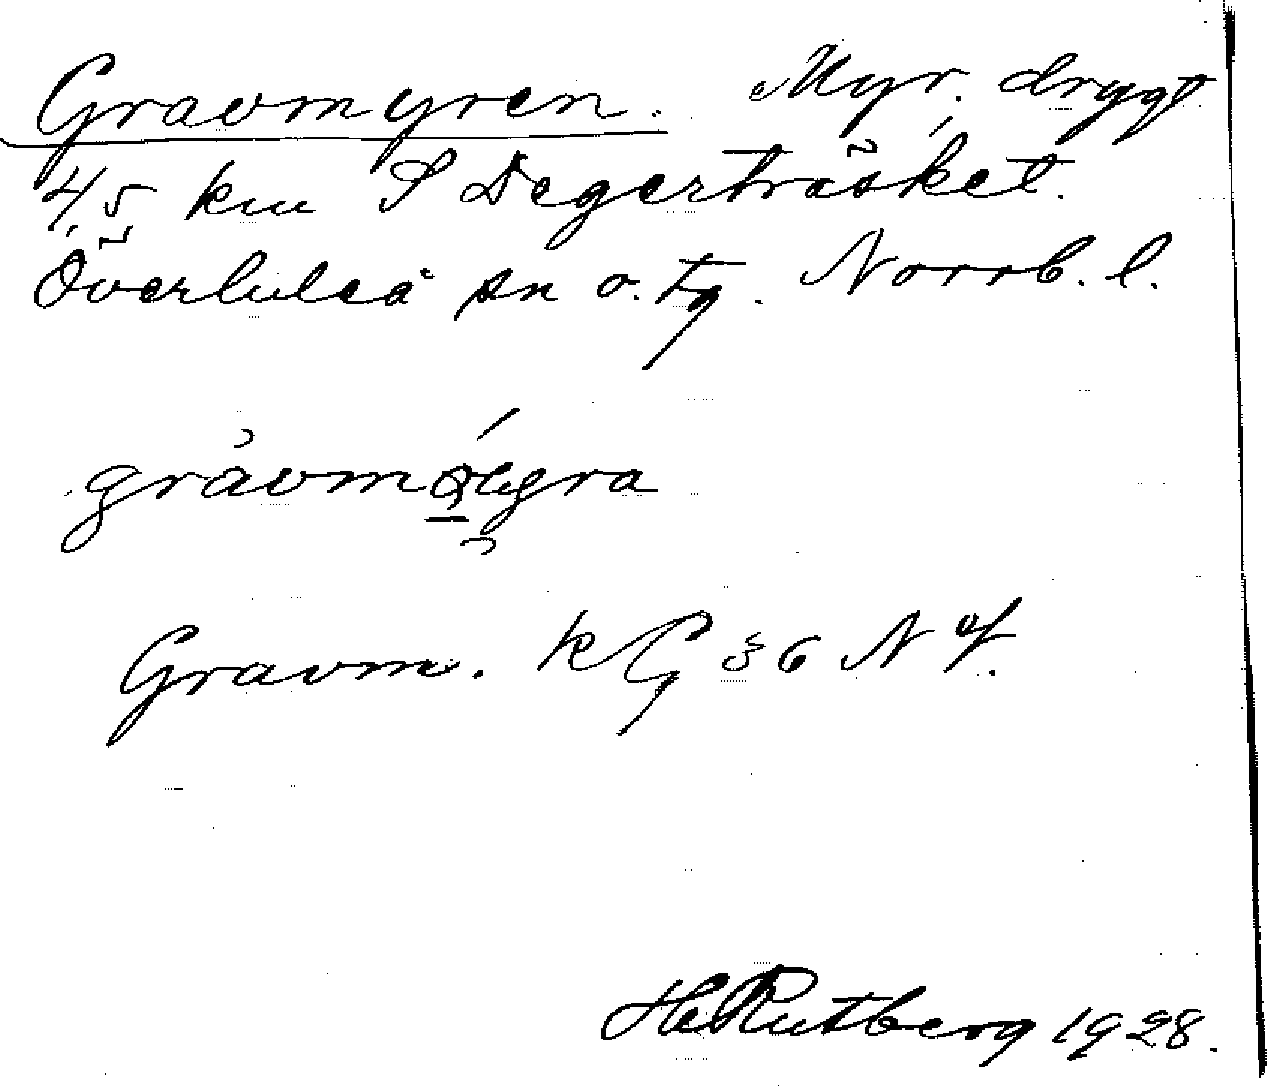 Gravmyren. Myr, drygt
4,5 km S Degerträsket.
Överluleå sn o. tg. Norrb. l.
Gravm. k G 36 N of.
HRutberg 1928.